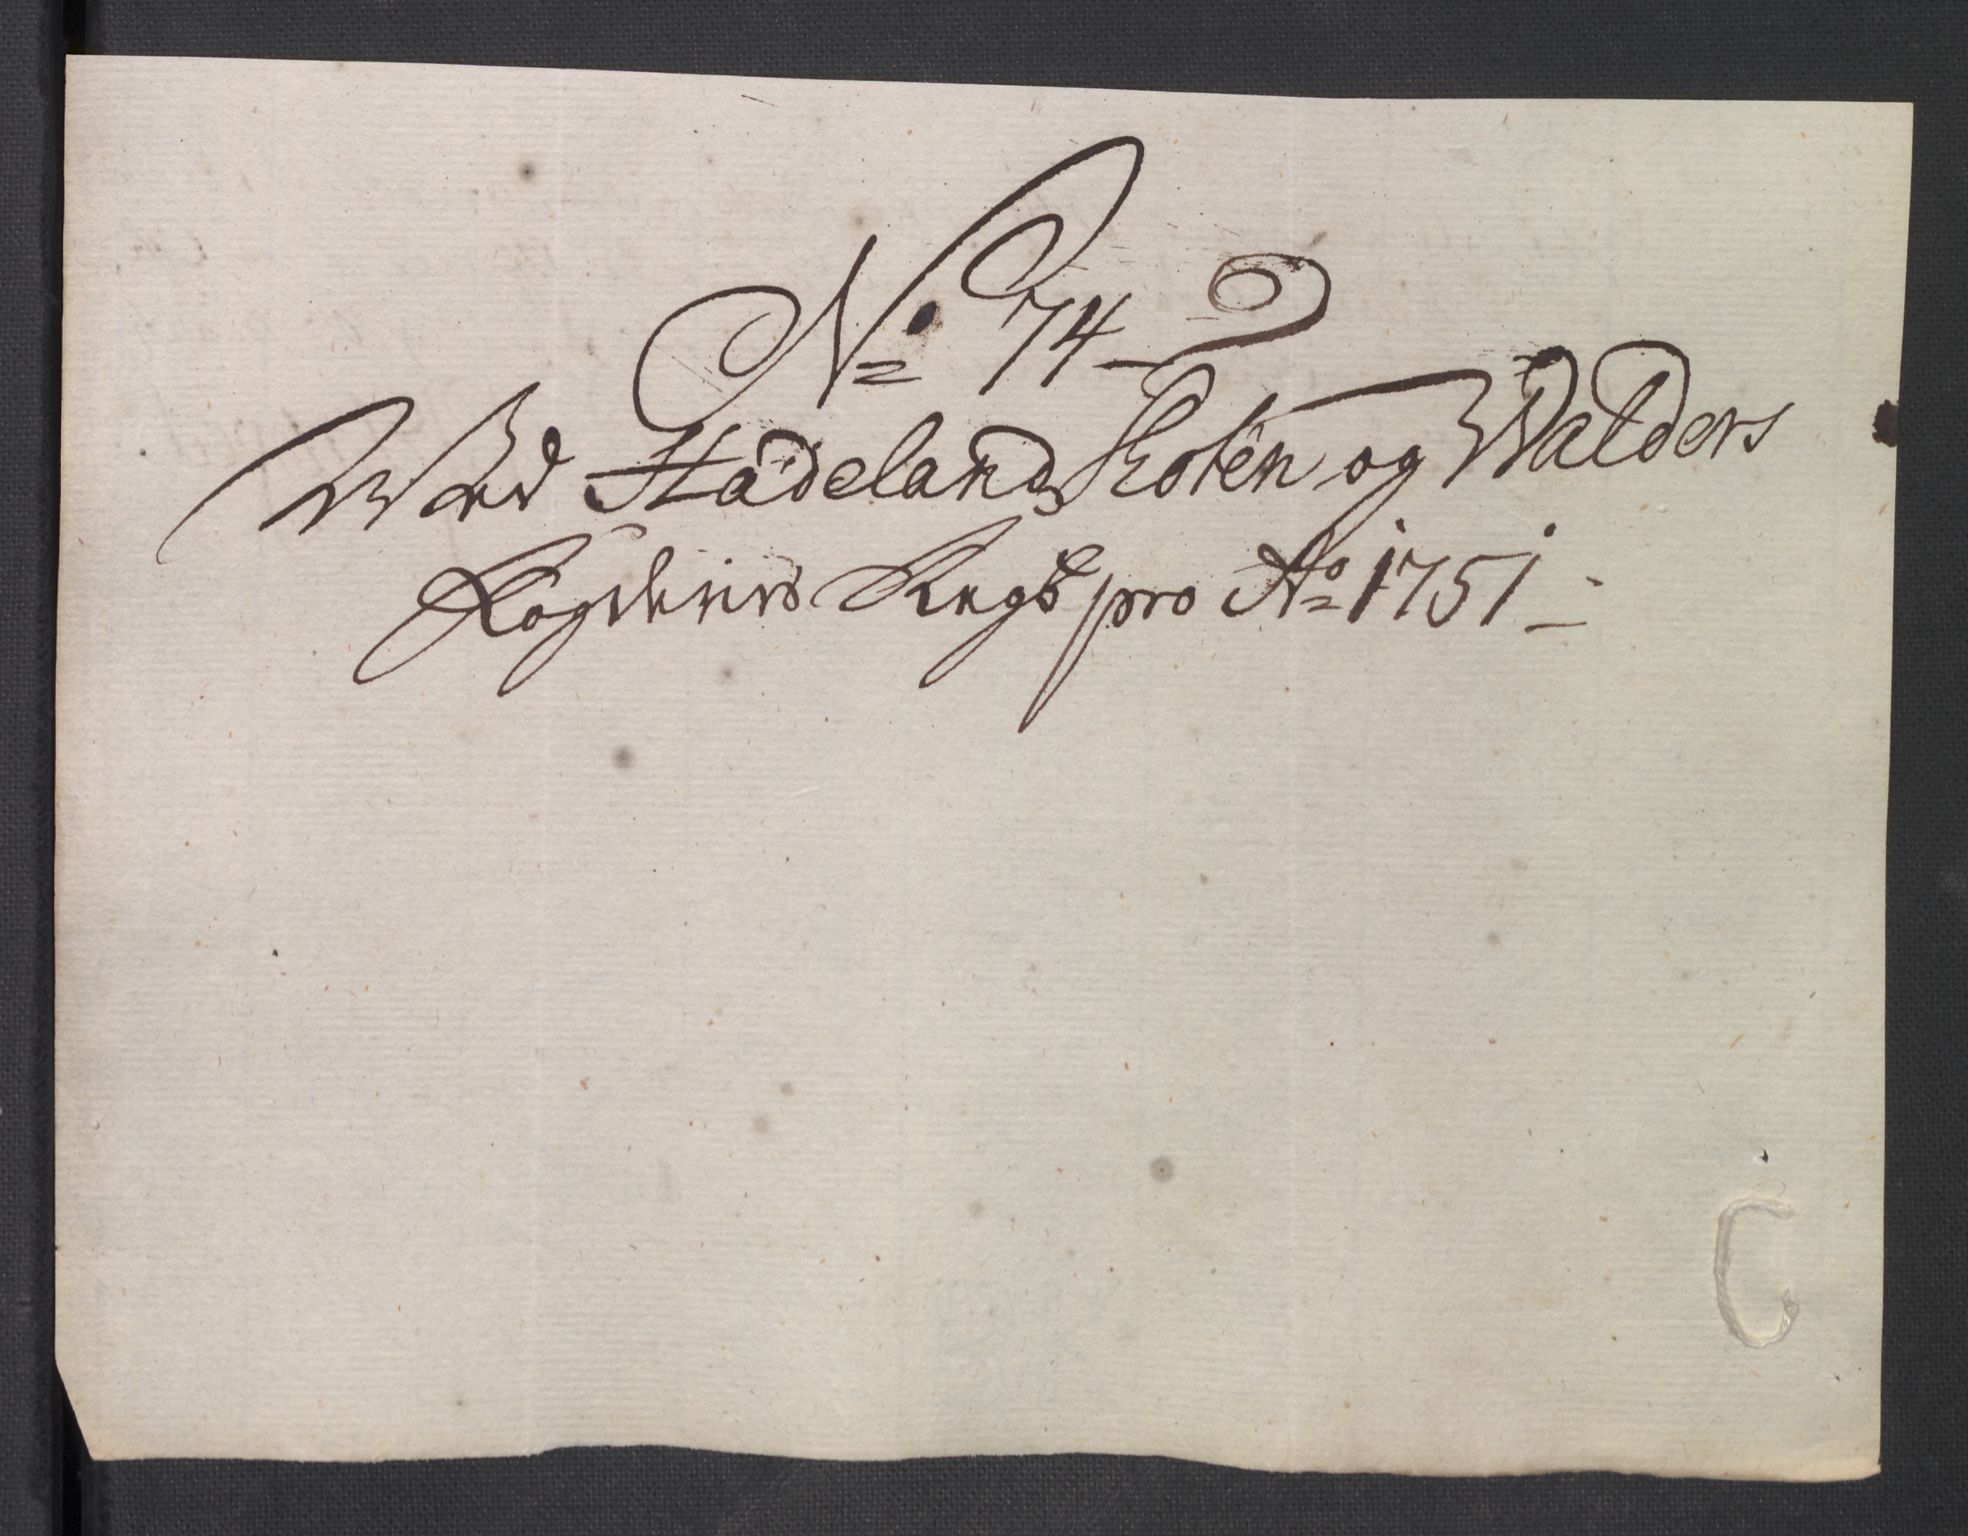 No 74
Wed Hadeland Toten og Walders
Fogderies Regsb pro Ao 1751